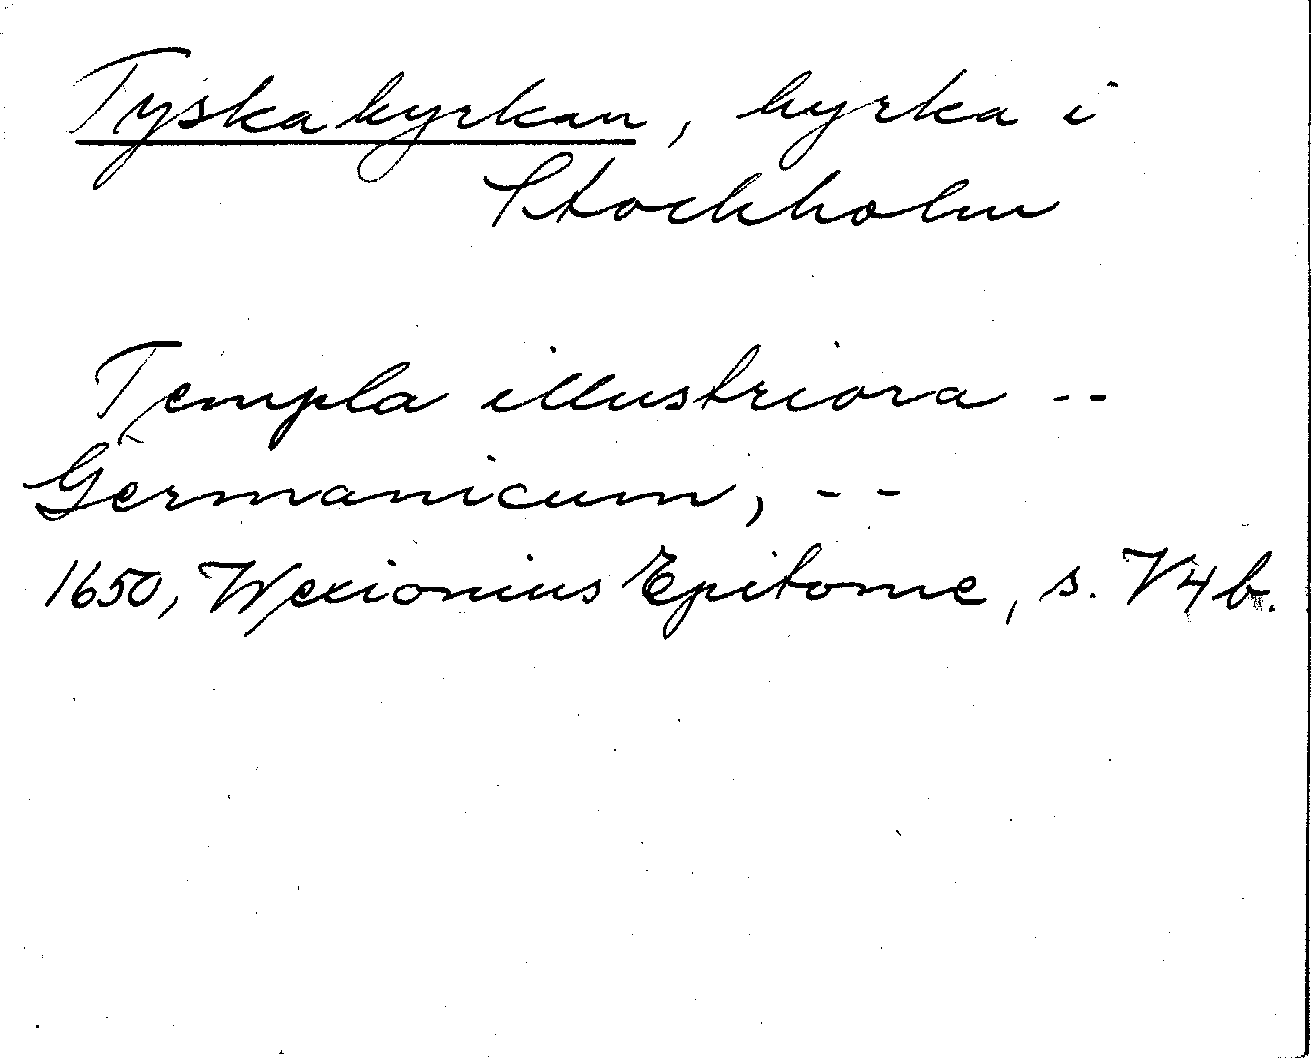 Tyska kyrkan, kyrka i
Stockholm
Templa illustriora --
Germanicum, --
1650, Wexionius Epitome, s. V4b.